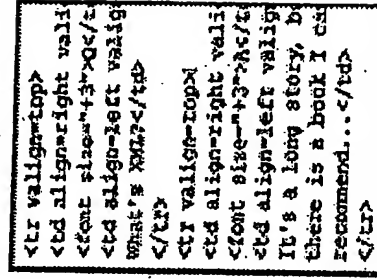 <tr valign=top>
<td align=right vali
<font size="+3">Q</t
<td align=left valig
What's XML?</td>
</tr>
<tr valign=top>
<td align=right vali
<font size="+3">A</t
<td align=left valig
It's a long story, b
there is a book I ca
recommend...</td>
</tr>